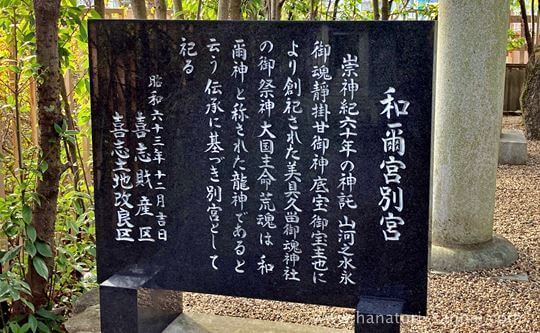 和爾宮別宮
崇神紀六十年の神託 山河之水永
御魂静掛甘御神底宝御宝主也に
より創祀された美具久留御魂神社
の御祭神 大国主命荒魂は 和
爾神と称された龍神であると
云う 伝承に基づき別宮として
祀る
昭和六十三年十二月吉日
喜志財産区
喜志土地改良区